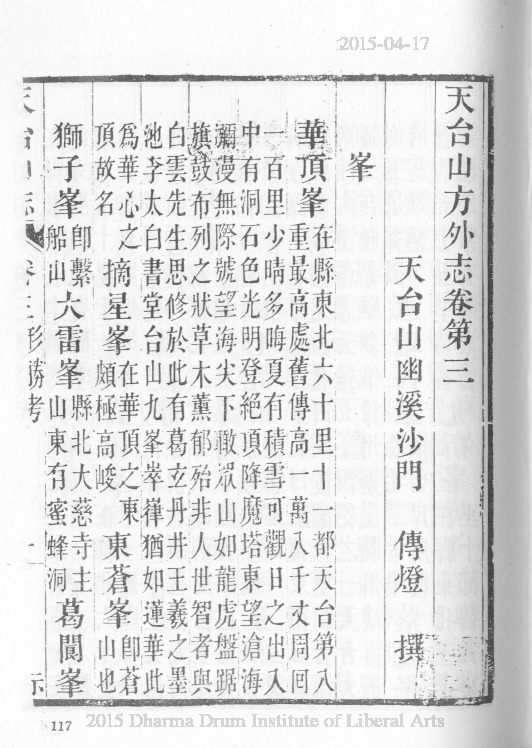 2015-04-17
天台山方外志卷第三
天台山幽溪沙門 傳燈 撰
峯
華頂峯在縣東北六十里十一都天台第八
重最高處舊傳高一萬八千丈周回
百里少晴多晦夏有積雪可觀日之出入
中有洞石色光明登絕頂降魔塔東望滄海
瀰漫無際號望海尖下瞰眾山如龍虎盤踞
旗鼓布列之狀草木薰郁殆非人世智者與
白雲先生思修於此有葛玄丹井王羲之墨
池李太白書堂台山九峯崒嵂猶如蓮華此
爲華心之
頂故名
摘星峯在華頂之東
頗極高峻
東蒼峯卽蒼
山也
獅子峯卽繫
船山
大雷峯縣北大慈寺主
山東有蜜蜂洞
葛閬峯
天台山志 卷三形勝考 一
117
2015 Dharma Drum Institute of Liberal Arts